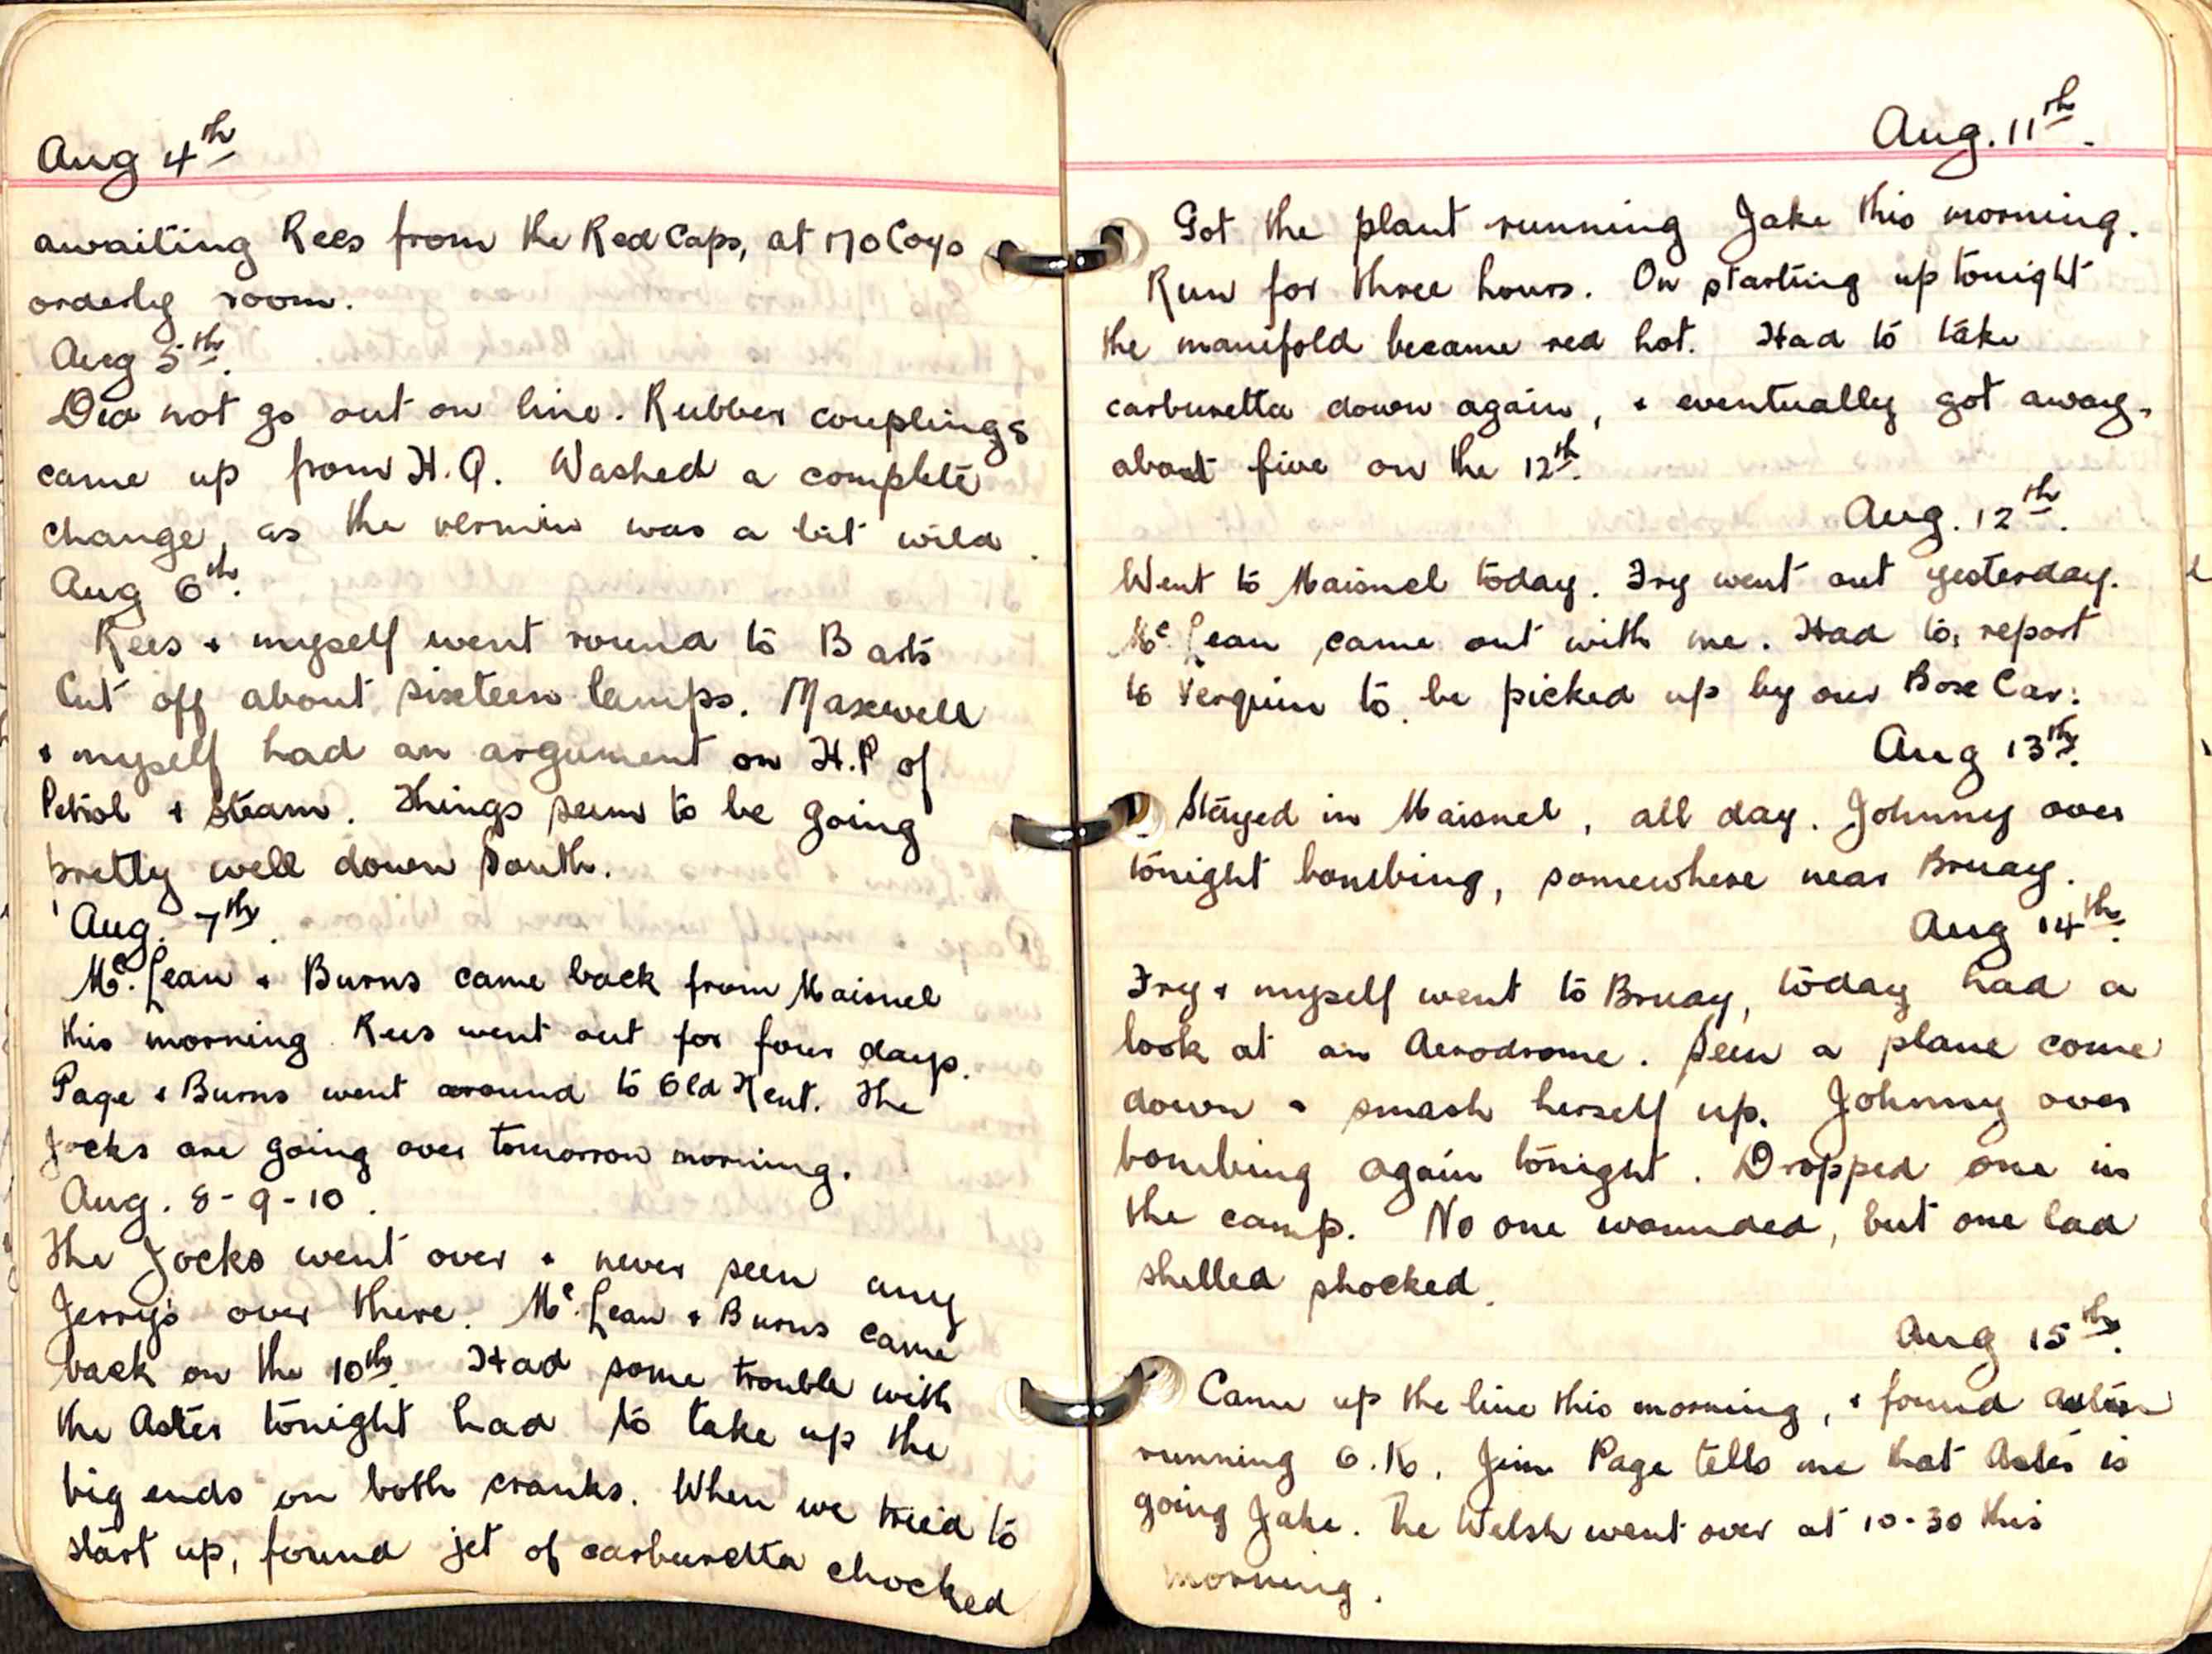 Aug 4th
awaiting Rees from the Red Caps, at 170 Coys
orderly room.
Aug 5th.
Did not go out on line. Rubber couplings
came up from H.Q. Washed a complete
change, as the vermin was a bit wild.
Aug 6th.
Rees & myself went round to Barts
Cut off about sixteen lamps. Maxwell
& myself had an argument on H.P of
Petrol & Steam. Things seem to be going
pretty well down South.
Aug. 7th.
Mc. Lean & Burns came back from Maisnel
this morning. Rees went out for four days.
Page & Burns went around to Old Kent. The
Jocks are going over tomorrow morning.
Aug. 8-9-10.
The Jocks went over & never seen any
Jerry's over there. Mc. Lean & Burns came
back on the 10th. Had some trouble with
the Aster tonight had to take up the
big ends on both cranks. When we tried to
start up, found jet of carburetta chocked
Aug. 11th.
Got the plant running Jake this morning.
Run for three hours. On starting up tonight
the manifold became red hot. Had to take
carburetta down again, & eventually got away,
about five on the 12th.
Aug. 12th.
Went to Maisnel today. Fry went out yesterday.
Mc. Lean came out with me. Had to report
to Verquin to be picked up by our Box Car.
Aug 13th.
Stayed in Maisnel, all day. Johnny over
tonight bombing, somewhere near Bruay.
Aug 14th.
Fry & myself went to Bruay, today had a
look at an Aerodrome. Seen a plane come
down & smash herself up. Johnny over
bombing again tonight. Dropped one in
the camp. No one wounded, but one lad
shelled shocked.
Aug 15th.
Came up the line this morning, & found Aster
running O.K. Jim Page tells me that Aster is
going Jake. The Welsh went over at 10-30 this
morning.